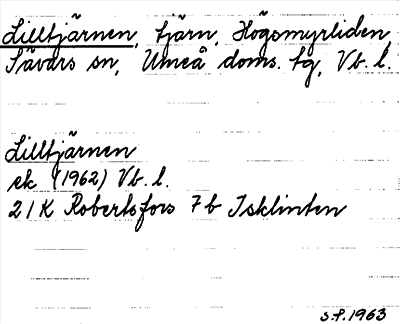 Lilltjärnen, tjärn, Högsmyrliden
Sävars sn, Umeå doms. tg, Vb. l.
Lilltjärnen
ek (1962) Vb. l.
21K Robertsfors 7b Isklinten
S.P. 1963